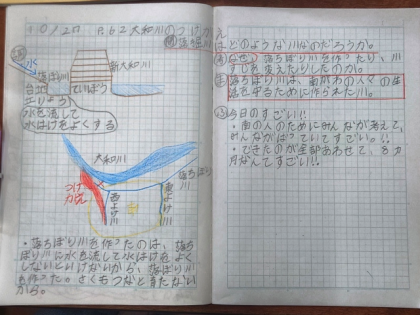 10/20 P.62 大和川のつけかえ
問 落堀川
水
落ぼり川
新大和川
台地
ていぼう
丘りょう
水を流して
水はけをよくする
大和川
落ちぼり川
つけかえ
西よけ川
東よけ川
・落ちぼり川を作ったのは、落ち
ぼり川に水を流して水はけをよく
しないといけないから、落ぼり川
を作った。さくもつなど育たない
から。
はどのような川なのだろうか。
なぜ、落ちぼり川を作ったり、川
すじを変えたりしたのか。
落ちぼり川は、南がわの人々の生
活を守るために作られた川。
今日のすごい!!
・南の人のためにみんなが考えて、
みんながばっていてすごい。!!
・できたのが全部あわせて、8ヵ
月なんてすごい!!